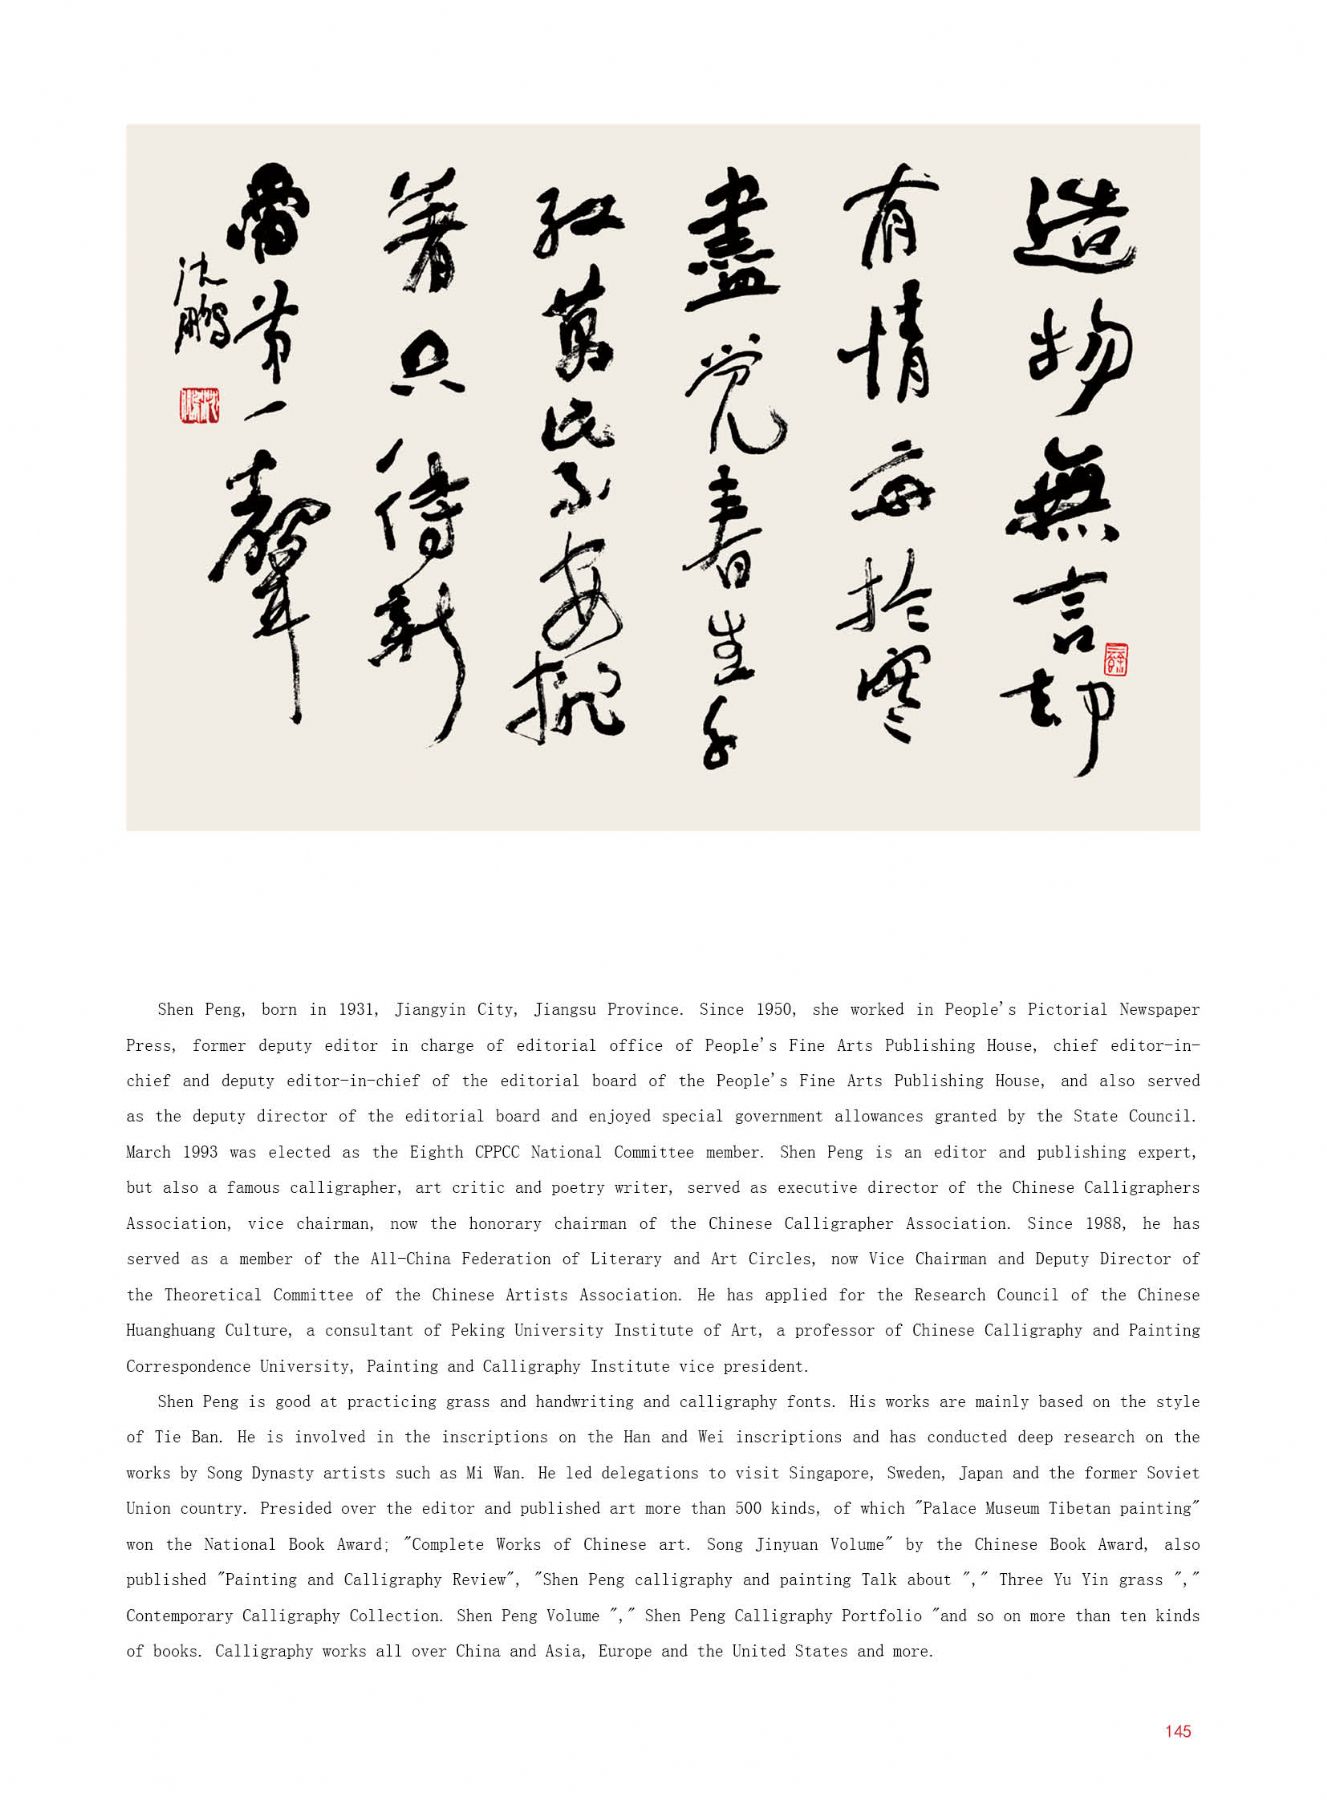 造物無言却
有情每於寒
盡觉春生千
紅萬紫安排
著只待新
雷第一聲
沈鵬
Shen Peng, born in 1931, Jiangyin City, Jiangsu Province. Since 1950, she worked in People's Pictorial Newspaper
Press, former deputy editor in charge of editorial office of People's Fine Arts Publishing House, chief editor-in-
chief and deputy editor-in-chief of the editorial board of the People's Fine Arts Publishing House, and also served
as the deputy director of the editorial board and enjoyed special government allowances granted by the State Council.
March 1993 was elected as the Eighth CPPCC National Committee member. Shen Peng is an editor and publishing expert,
but also a famous calligrapher, art critic and poetry writer, served as executive director of the Chinese Calligraphers
Association, vice chairman, now the honorary chairman of the Chinese Calligrapher Association. Since 1988, he has
served as a member of the All-China Federation of Literary and Art Circles, now Vice Chairman and Deputy Director of
the Theoretical Committee of the Chinese Artists Association. He has applied for the Research Council of the Chinese
Huanghuang Culture, a consultant of Peking University Institute of Art, a professor of Chinese Calligraphy and Painting
Correspondence University, Painting and Calligraphy Institute vice president.
Shen Peng is good at practicing grass and handwriting and calligraphy fonts. His works are mainly based on the style
of Tie Ban. He is involved in the inscriptions on the Han and Wei inscriptions and has conducted deep research on the
works by Song Dynasty artists such as Mi Wan. He led delegations to visit Singapore, Sweden, Japan and the former Soviet
Union country. Presided over the editor and published art more than 500 kinds, of which "Palace Museum Tibetan painting"
won the National Book Award; "Complete Works of Chinese art. Song Jinyuan Volume" by the Chinese Book Award, also
published "Painting and Calligraphy Review", "Shen Peng calligraphy and painting Talk about "," Three Yu Yin grass ","
Contemporary Calligraphy Collection. Shen Peng Volume "," Shen Peng Calligraphy Portfolio "and so on more than ten kinds
of books. Calligraphy works all over China and Asia, Europe and the United States and more.
145